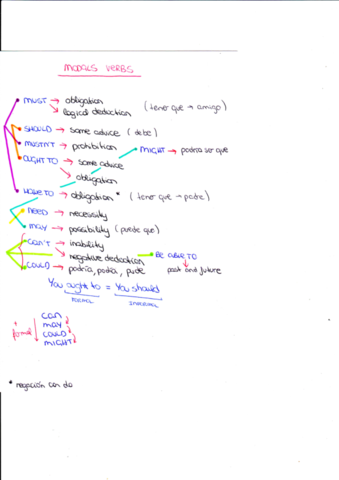 MODALS VERBS
MUST → obligation
→ logical deduction (tener que → amigo)
SHOULD → some advice (debe)
MUSTN'T → prohibition
MIGHT → podria ser que
OUGHT TO → some advice
→ obligation
HAVE TO → obligation * (tener que → padre)
NEED → necessity
MAY → possibility (puede que)
CAN'T → inability
→ negative deduction
BE ABLE TO
COULD → podría, podía, pude
past and future
You ought to = You should
FORMAL INFORMAL
CAN
+ MAY
formal COULD
MIGHT
* negación con do